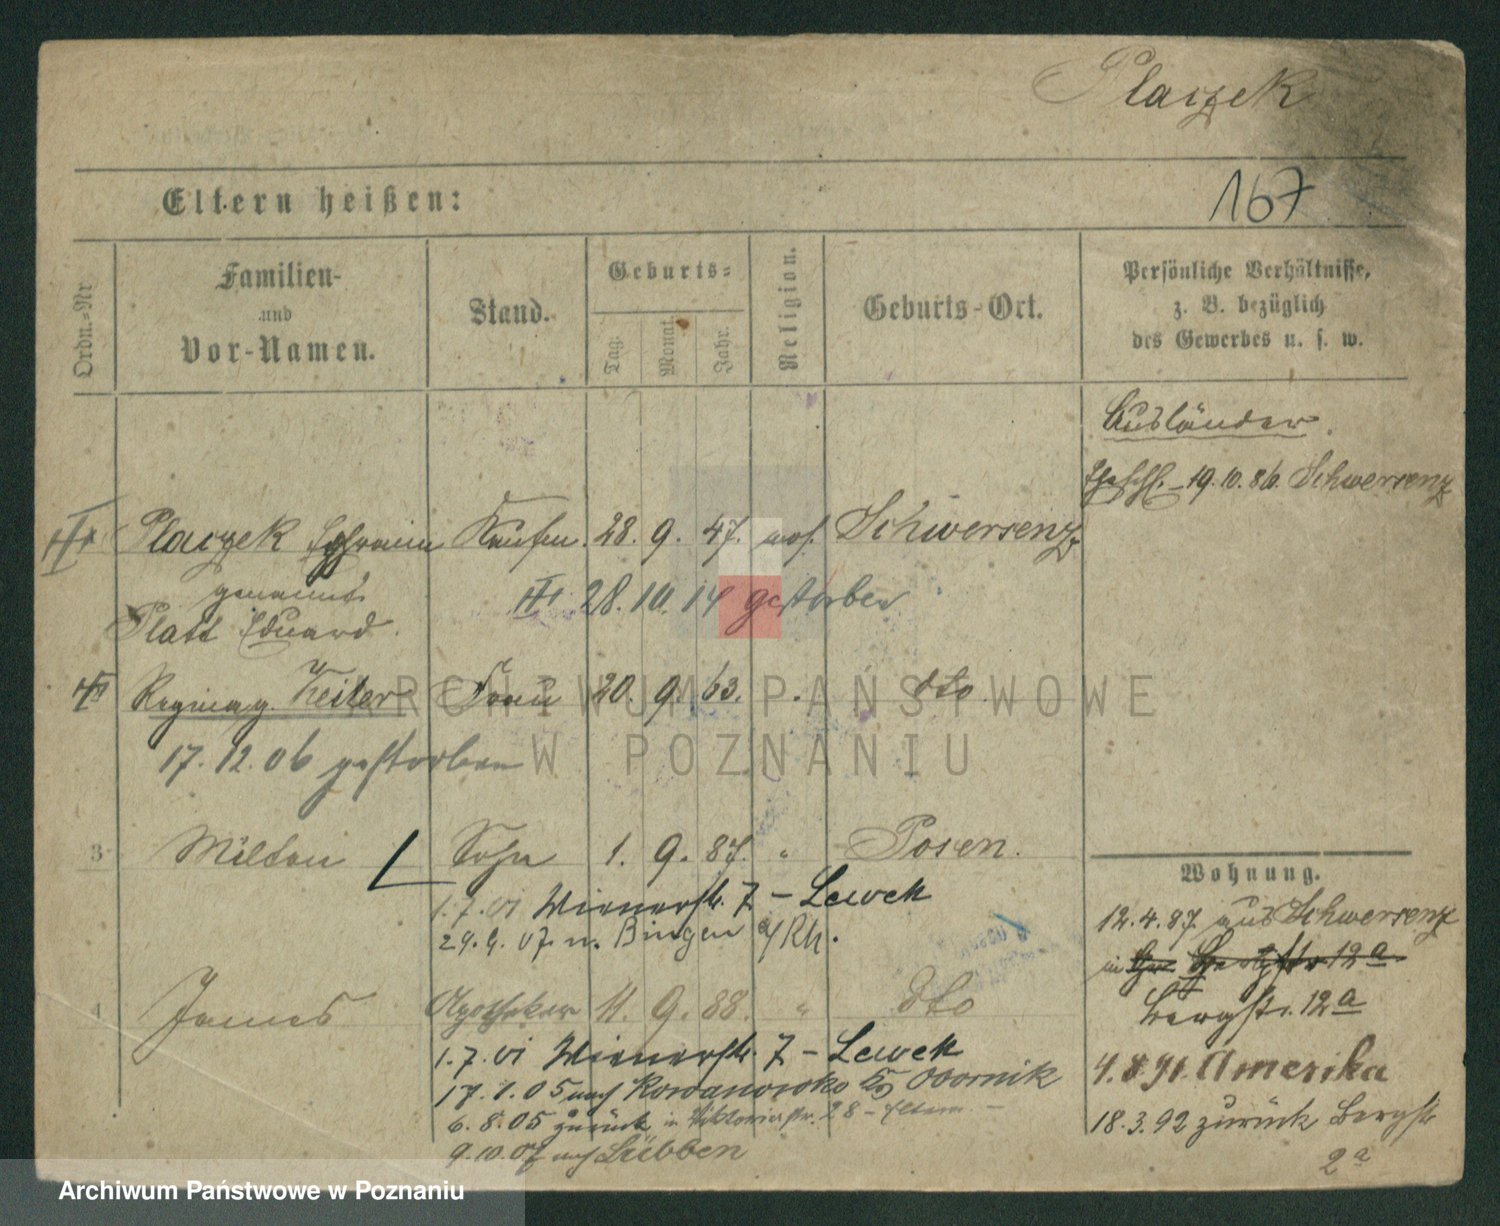 Placzek
Eltern heißen:
167
Ordn.-Nr
Familien-
und
Vor-Namen.
Stand.
Geburts-
Tag.
Monat.
Jahr.
Religion.
Geburts-Ort.
Persönliche Verhältnisse,
z. B. bezüglich
des Gewerbes u. s. w.
Ausländer.
19.10.86. Schwersenz
Placzek Ephraim Kaufm. 28. 9. 47. mos. Schwersenz
genannt
28. 10. 14 gestorben
Platt Eduard.
Regina g. Keiler Frau 20. 9. 63. dto
17. 12. 06 gestorben
3 Milton Sohn 1. 9. 87. " Posen.
1.7.01 Wienerstr. 7 – Lewek
29.9.07. n. Bingen a/Rh.
4 James Apotheker 11. 9. 88. " dto
1.7.01 Wienerstr. 7 – Lewek
17.1.05 nach Rowanowko Kr Obornik
6.8.05 zurück in Viktoriastr. 28 – Eltern –
9.10.07 nach Lübben
Wohnung.
12.4.87. aus Schwersenz
in Bergstr. 12a
Bergstr. 12a
4.8.91. Amerika
18.3.92 zurück Bergstr
2a
ARCHIWUM PAŃSTWOWE
W POZNANIU
Archiwum Państwowe w Poznaniu